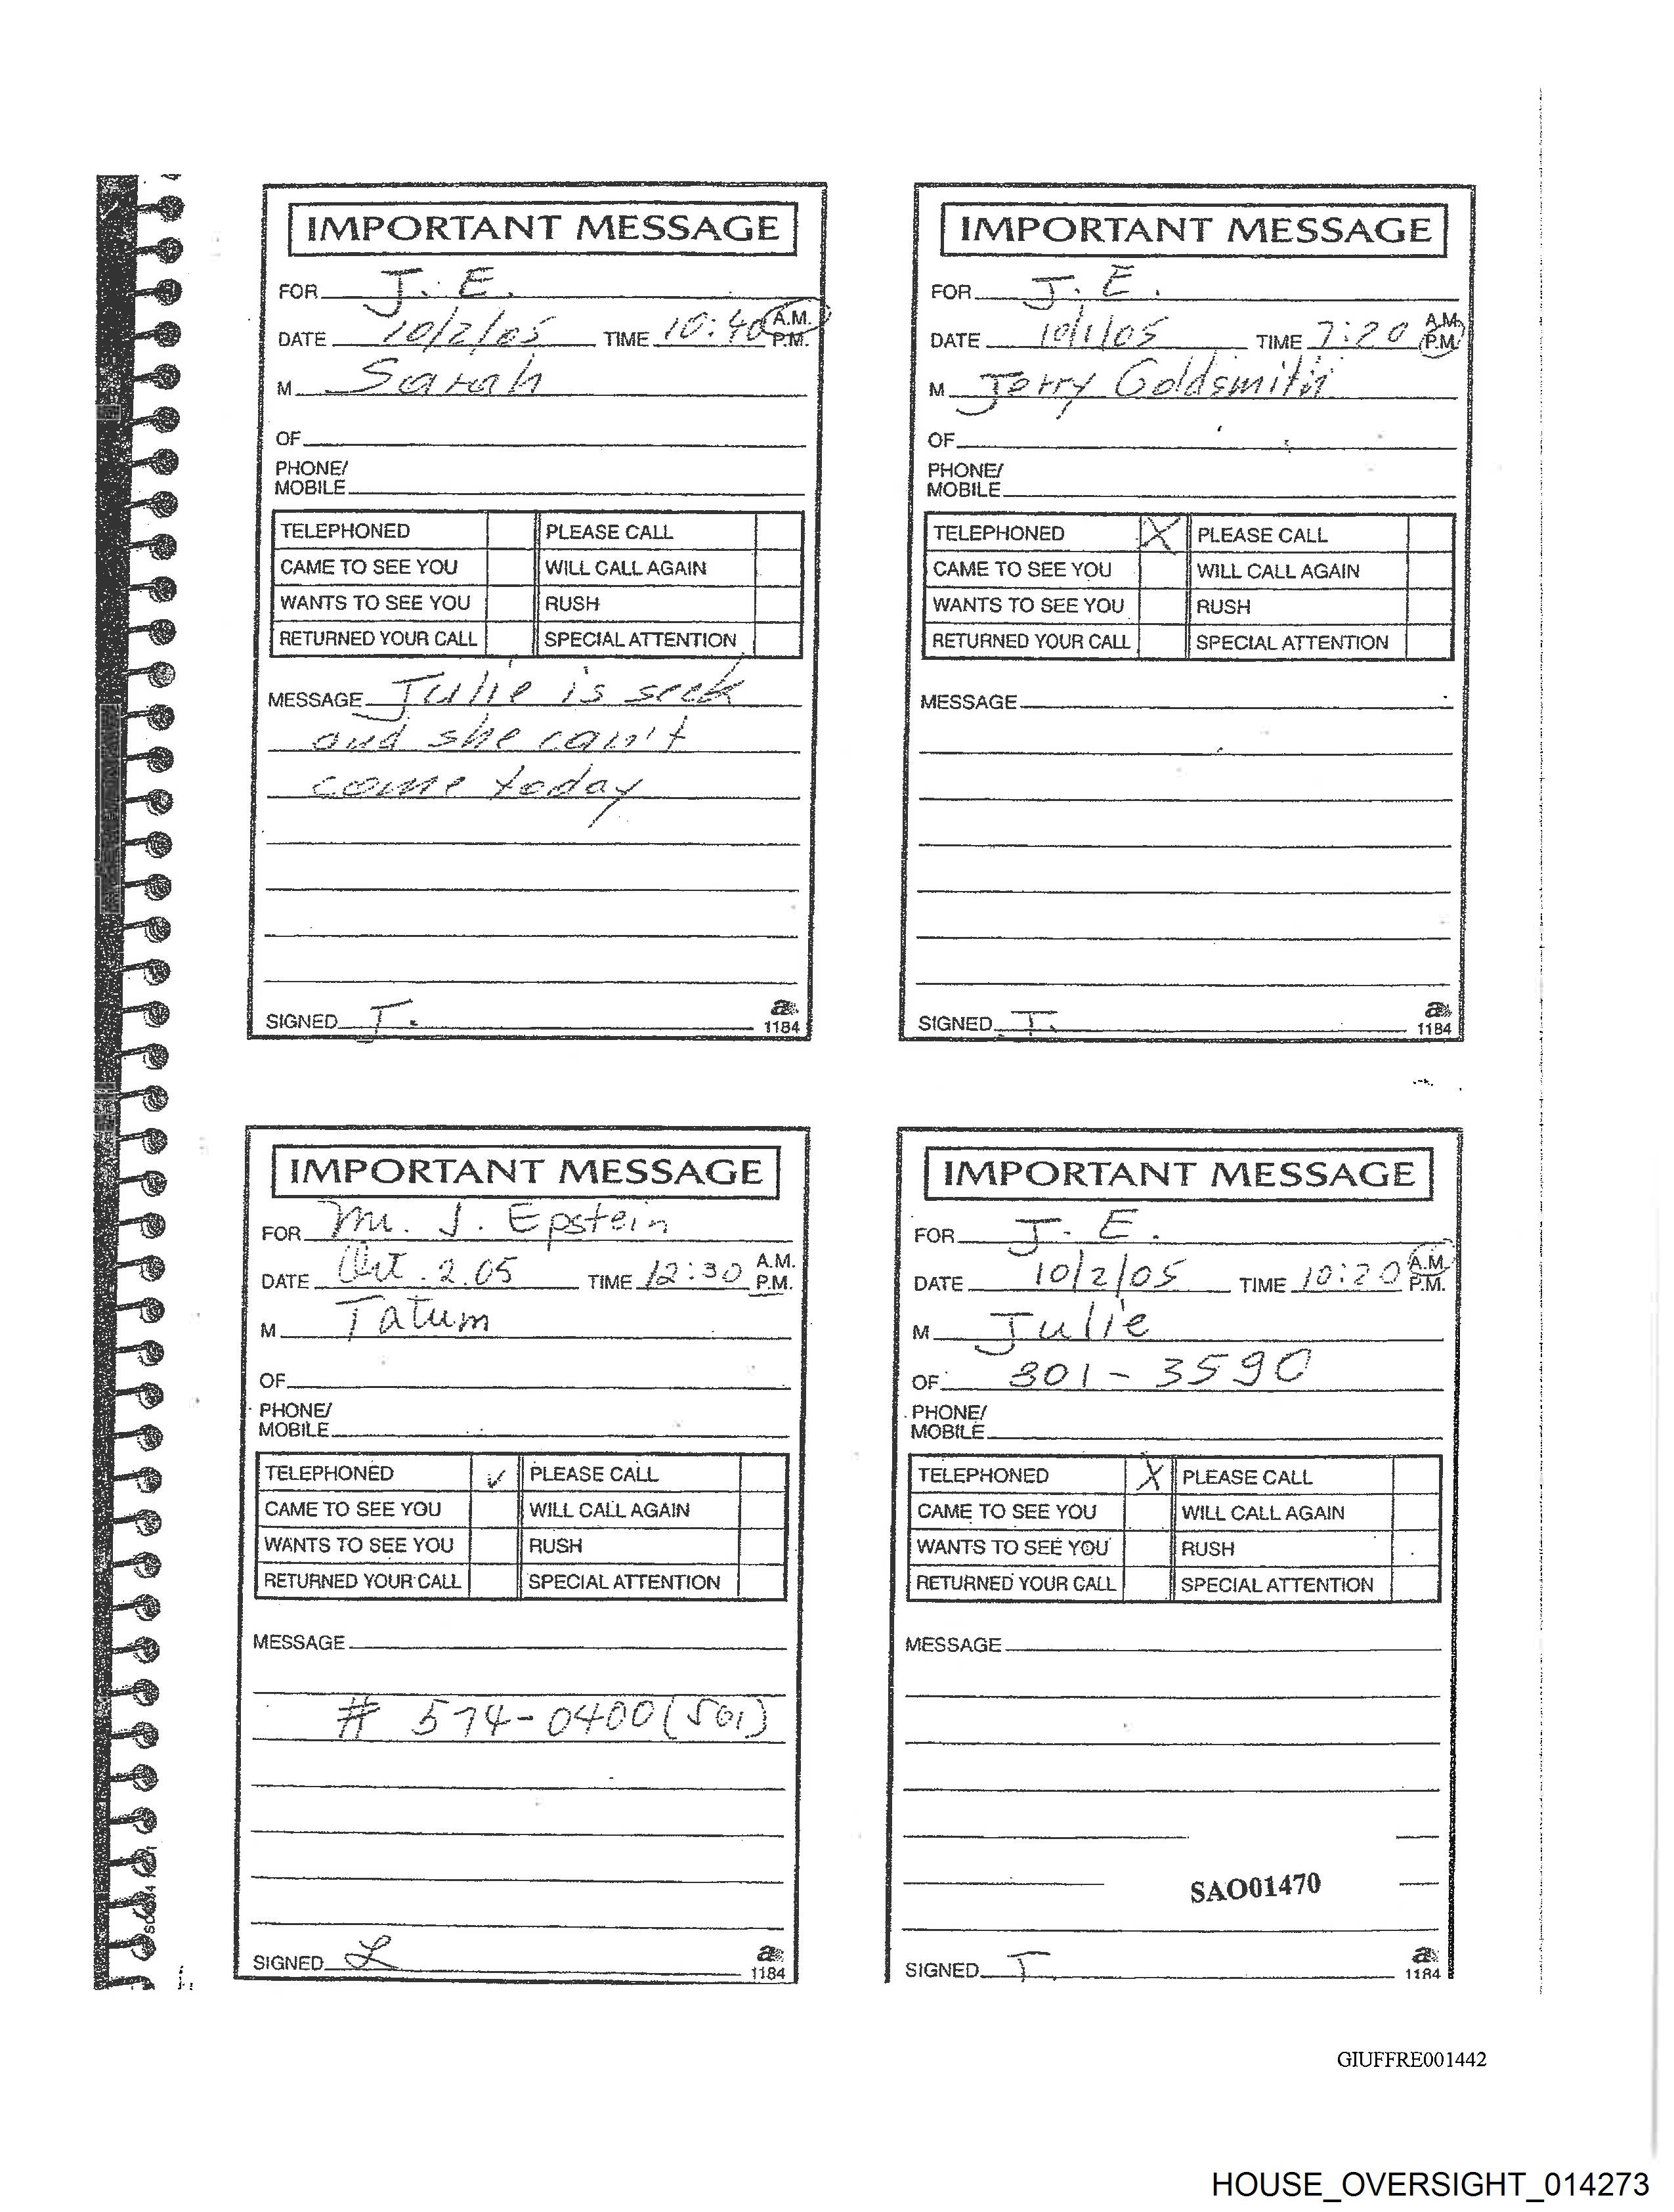 IMPORTANT MESSAGE
FOR J. E.
DATE 10/2/05 TIME 10:40 A.M. P.M.
M Sarah
OF
PHONE/
MOBILE
TELEPHONED PLEASE CALL
CAME TO SEE YOU WILL CALL AGAIN
WANTS TO SEE YOU RUSH
RETURNED YOUR CALL SPECIAL ATTENTION
MESSAGE Julie is seek
and she can't
come today
SIGNED J.
a
1184
IMPORTANT MESSAGE
FOR J. E.
DATE 10/1/05 TIME 7:20 A.M. P.M.
M Jerry Goldsmith
OF
PHONE/
MOBILE
TELEPHONED X PLEASE CALL
CAME TO SEE YOU WILL CALL AGAIN
WANTS TO SEE YOU RUSH
RETURNED YOUR CALL SPECIAL ATTENTION
MESSAGE
SIGNED T.
a
1184
IMPORTANT MESSAGE
FOR Mr. J. Epstein
DATE Oct. 2.05 TIME 12:30 A.M. P.M.
M Tatum
OF
PHONE/
MOBILE
TELEPHONED ✓ PLEASE CALL
CAME TO SEE YOU WILL CALL AGAIN
WANTS TO SEE YOU RUSH
RETURNED YOUR CALL SPECIAL ATTENTION
MESSAGE
# 574-0400 (561)
SIGNED L
a
1184
IMPORTANT MESSAGE
FOR J. E.
DATE 10/2/05 TIME 10:20 A.M. P.M.
M Julie
OF 801-3590
PHONE/
MOBILE
TELEPHONED X PLEASE CALL
CAME TO SEE YOU WILL CALL AGAIN
WANTS TO SEE YOU RUSH
RETURNED YOUR CALL SPECIAL ATTENTION
MESSAGE
SAO01470
SIGNED T.
a
1184
GIUFFRE001442
HOUSE_OVERSIGHT_014273